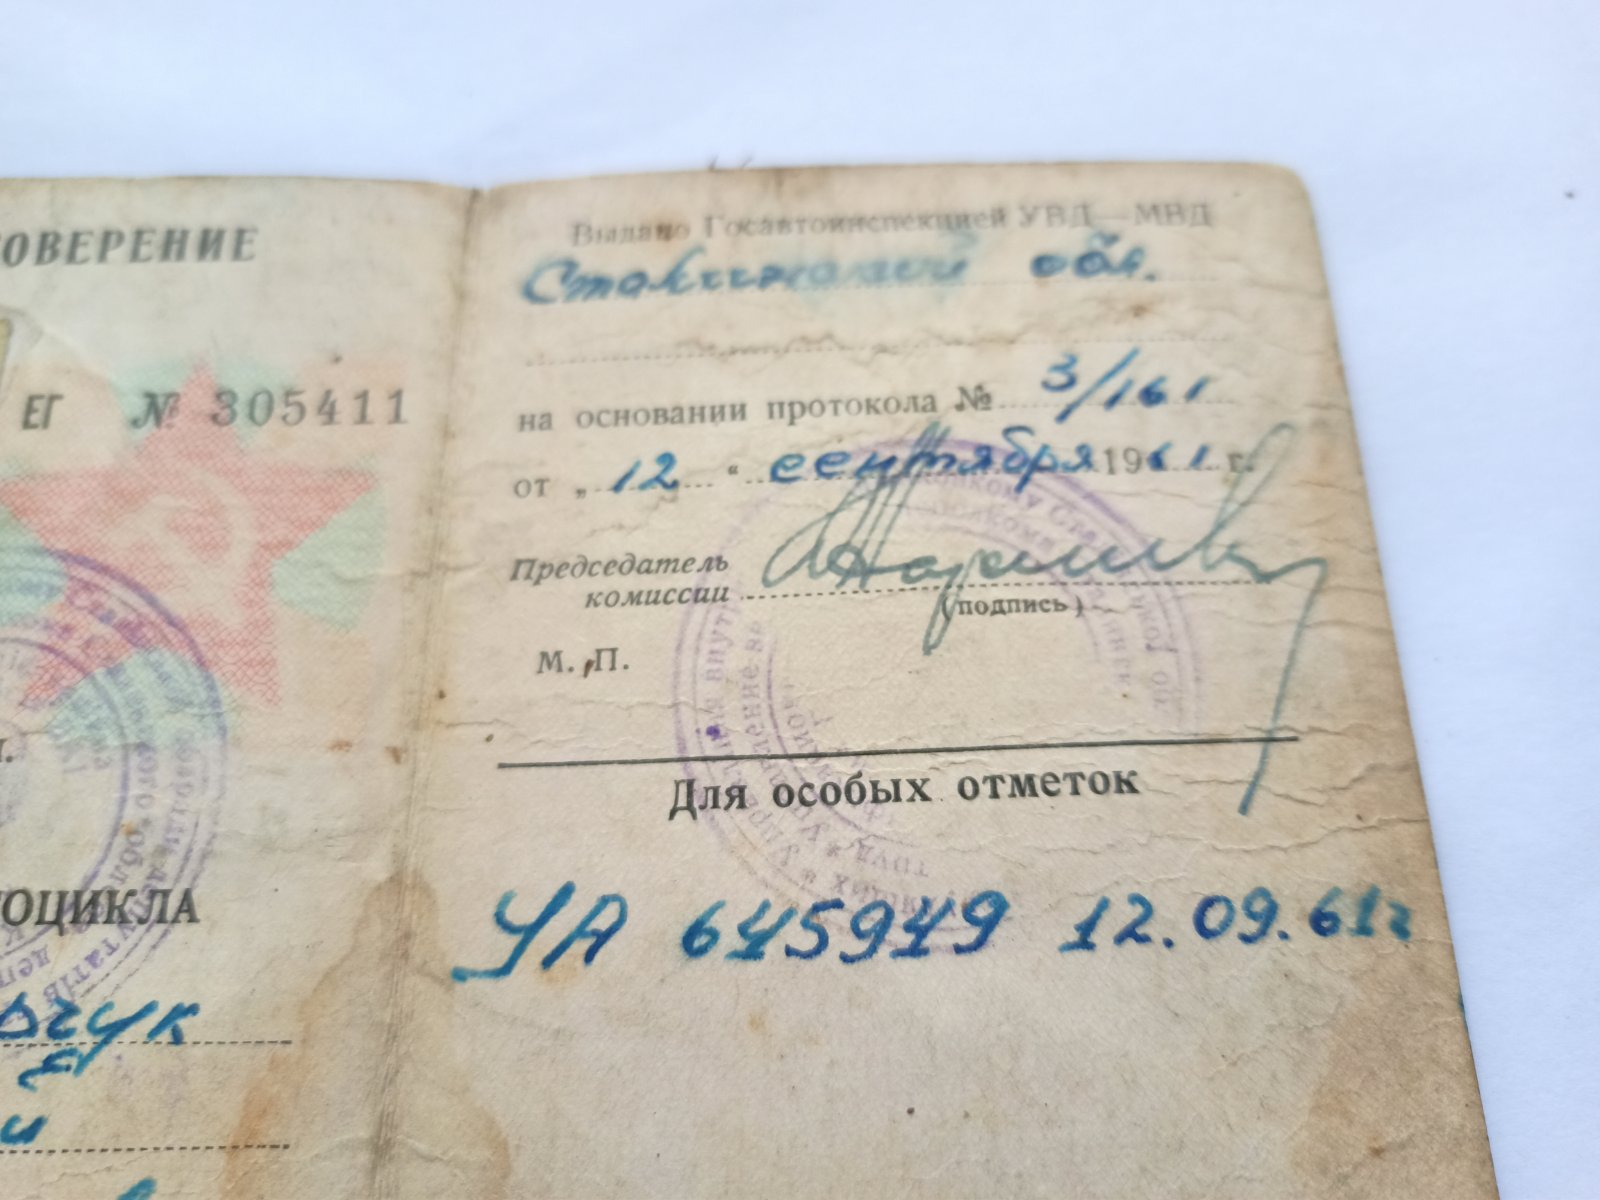 ОВЕРЕНИЕ
ЕГ № 305411
ОЦИКЛА
чук
Выдано Госавтоинспекцией УВД—МВД
Сталинской обл.
на основании протокола № 3/161
от „12“ сентября 1961 г.
Председатель
комиссии
(подпись)
М. П.
Для особых отметок
УА 645949 12.09.61г